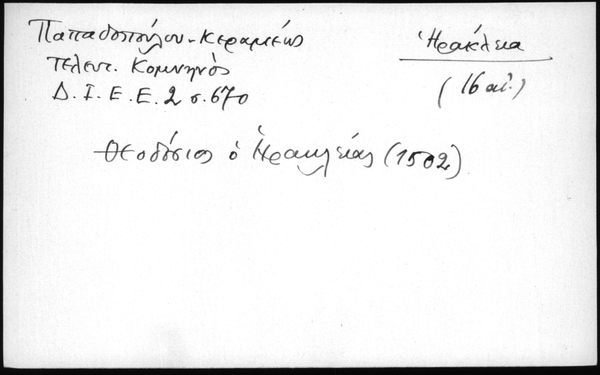 Παπαδοπούλου-Κεραμέως
τελευτ. Κομνηνός
Δ.Ι.Ε.Ε. 2 σ. 670
Ἡράκλεια
(16 αἰ.)
Θεοδόσιος ὁ Ἡρακλείας (1502)